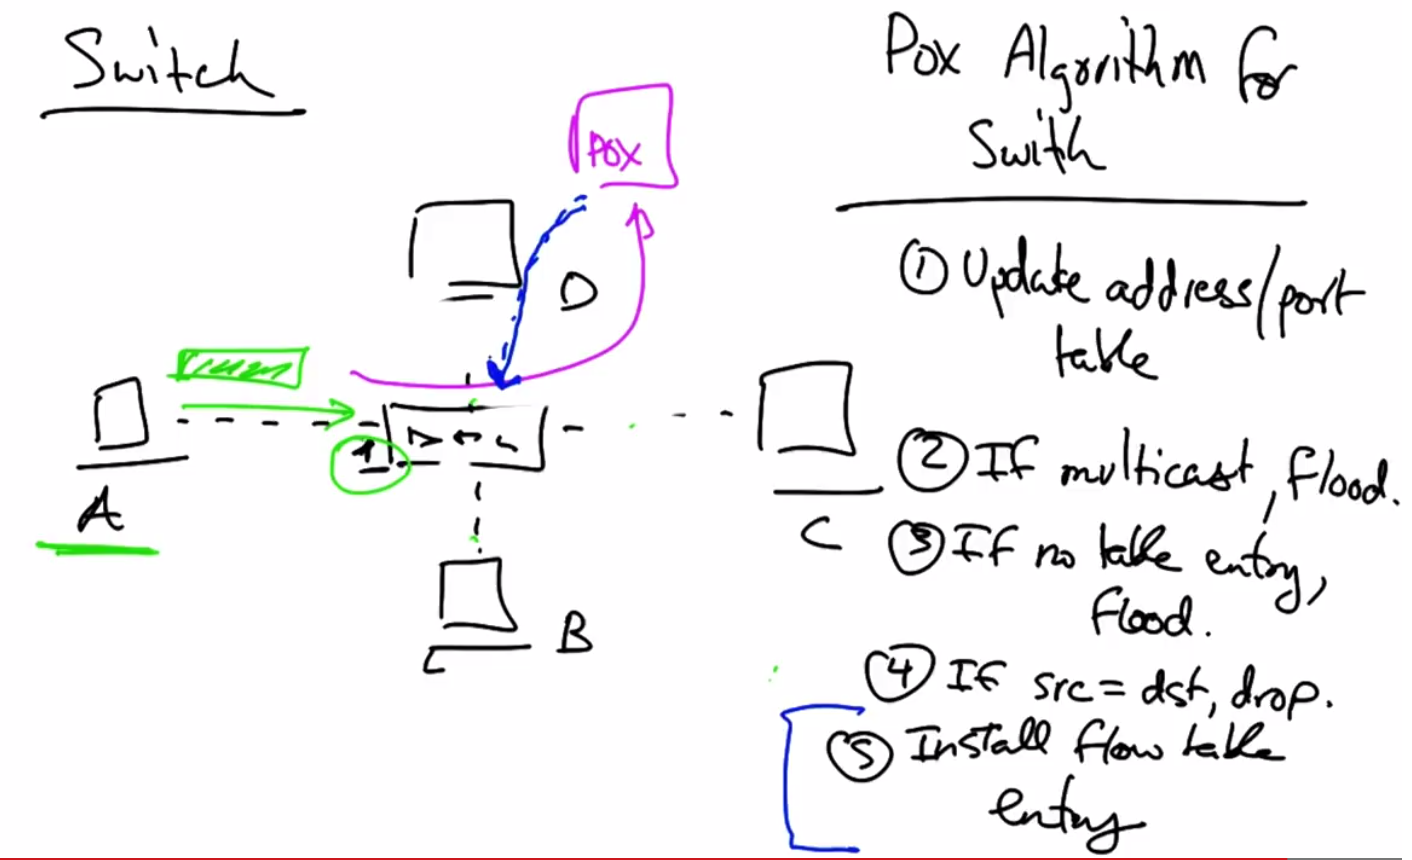 Switch
Pox Algorithm for
Swith
POX
D
① Update address/port
table
1
A
C
② If multicast, flood.
③ If no table entry,
flood.
B
④ If src = dst, drop.
⑤ Install flow table
entry